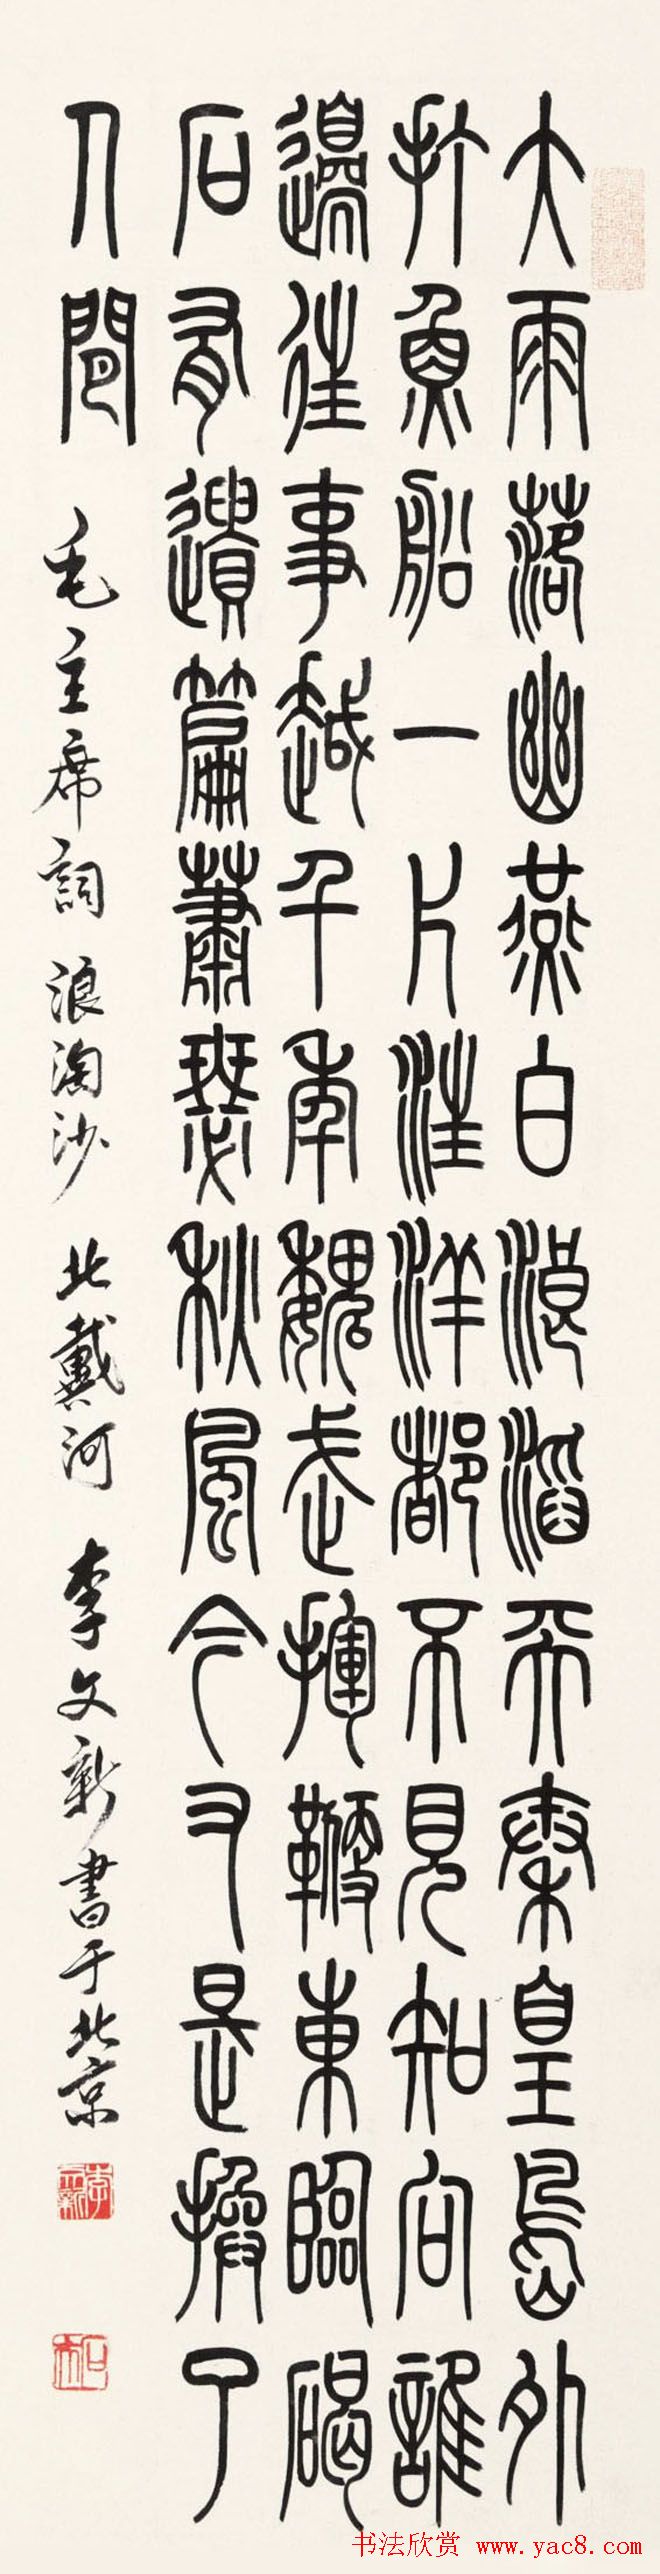 大雨落幽燕白浪滔天秦皇島外
打魚船一片汪洋都不見知向誰
邊往事越千年魏武揮鞭東臨碣
石有遺篇蕭瑟秋風今又是換了
人間
毛主席詞 浪淘沙 北戴河 李文新書于北京
书法欣赏 www.yac8.com